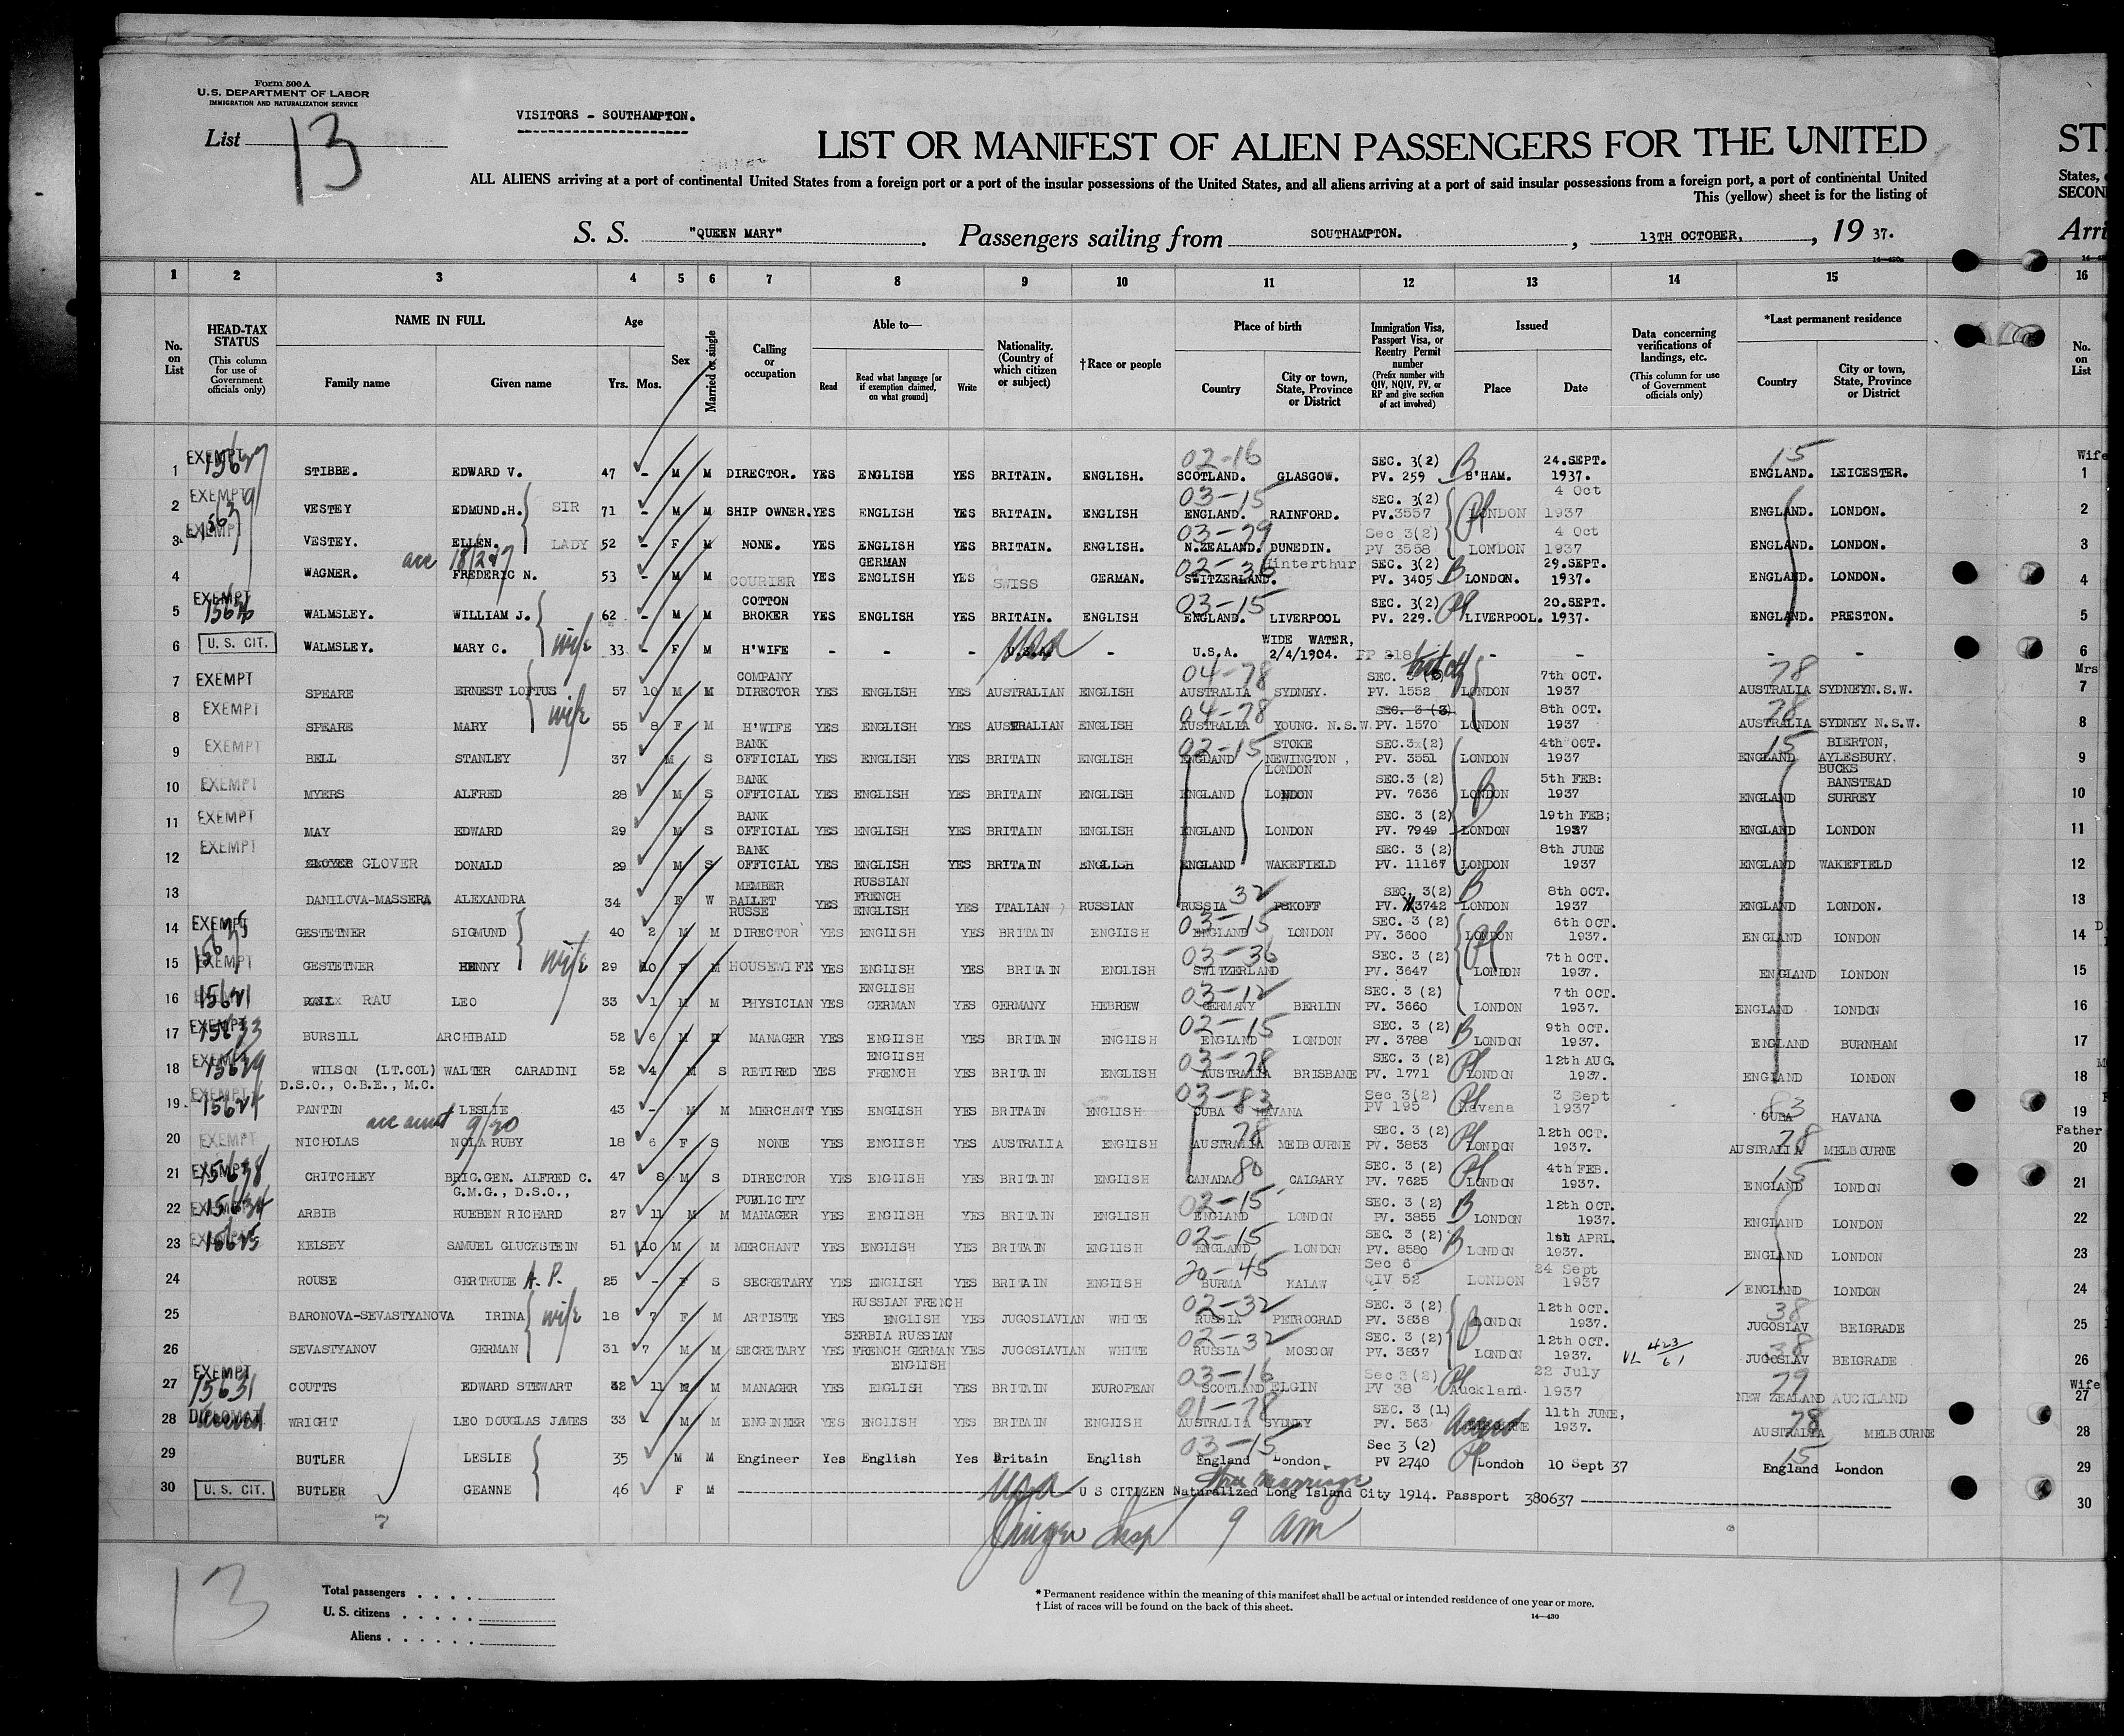 Form 500 A
U.S. DEPARTMENT OF LABOR
IMMIGRATION AND NATURALIZATION SERVICE
List 13
VISITORS - SOUTHAMPTON.
LIST OR MANIFEST OF ALIEN PASSENGERS FOR THE UNITED
ALL ALIENS arriving at a port of continental United States from a foreign port or a port of the insular possessions of the United States, and all aliens arriving at a port of said insular possessions from a foreign port, a port of continental United
This (yellow) sheet is for the listing of
S. S. "QUEEN MARY" . Passengers sailing from SOUTHAMPTON. , 13TH OCTOBER, , 19 37.
STA
States,
SECON
Arri
1 2 3 4 5 6 7 8 9 10 11 12 13 14 15 16
No. on List
HEAD-TAX STATUS (This column for use of Government officials only)
NAME IN FULL
Family name Given name
Age
Yrs. Mos.
Sex
Married or single
Calling or occupation
Able to—
Read
Read what language [or if exemption claimed, on what ground]
Write
Nationality. (Country of which citizen or subject)
†Race or people
Place of birth
Country
City or town, State, Province or District
Immigration Visa, Passport Visa, or Reentry Permit number (Prefix number with QIV, NQIV, PV, or RP and give section of act involved)
Issued
Place Date
Data concerning verifications of landings, etc. (This column for use of Government officials only)
*Last permanent residence
Country
City or town, State, Province or District
No. on List
1 EXEMPT 15627 STIBBE. EDWARD V. 47 - M M DIRECTOR. YES ENGLISH YES BRITAIN. ENGLISH. 02-16 SCOTLAND. GLASGOW. SEC. 3(2) PV. 259 B'HAM. 24.SEPT. 1937. 15 ENGLAND. LEICESTER. Wife 1
2 EXEMPT VESTEY EDMUND.H. SIR 71 - M M SHIP OWNER. YES ENGLISH YES BRITAIN. ENGLISH 03-15 ENGLAND. RAINFORD. SEC. 3(2) PV.3557 LONDON 4 Oct 1937 ENGLAND. LONDON. 2
3 EXEMPT VESTEY. ELLEN. LADY 52 - F M NONE. YES ENGLISH YES BRITAIN. ENGLISH. 03-79 N.ZEALAND. DUNEDIN. Sec 3(2) PV 3558 LONDON 4 Oct 1937 ENGLAND. LONDON. 3
4 WAGNER. FREDERIC N. 53 - M M COURIER YES GERMAN ENGLISH YES SWISS GERMAN. 02-36 SWITZERLAND. Winterthur SEC. 3(2) PV. 3405 B LONDON. 29.SEPT. 1937. ENGLAND. LONDON. 4
5 EXEMPT 15636 WALMSLEY. WILLIAM J. 62 - M M COTTON BROKER YES ENGLISH YES BRITAIN. ENGLISH 03-15 ENGLAND. LIVERPOOL SEC. 3(2) PV. 229. LIVERPOOL. 20.SEPT. 1937. ENGLAND. PRESTON. 5
6 U. S. CIT. WALMSLEY. MARY C. wife 33 - F M H'WIFE - - - U.S.A. - U.S.A. WIDE WATER, 2/4/1904. - - - - 6
7 EXEMPT SPEARE ERNEST LOFTUS 57 10 M M COMPANY DIRECTOR YES ENGLISH YES AUSTRALIAN ENGLISH 04-78 AUSTRALIA SYDNEY. PV. 1552 LONDON 7th OCT. 1937 78 AUSTRALIA SYDNEY N.S.W. Mrs 7
8 EXEMPT SPEARE MARY wife 55 8 F M H'WIFE YES ENGLISH YES AUSTRALIAN ENGLISH 04-78 AUSTRALIA YOUNG. N.S.W. SEC. 3 (3) PV. 1570 LONDON 8th OCT. 1937 78 AUSTRALIA SYDNEY N.S.W. 8
9 EXEMPT BELL STANLEY 37 M S BANK OFFICIAL YES ENGLISH YES BRITAIN ENGLISH 02-15 ENGLAND STOKE NEWINGTON, LONDON SEC.3 (2) PV. 3551 LONDON 4th OCT. 1937 15 ENGLAND BIERTON, AYLESBURY, BUCKS 9
10 EXEMPT MYERS ALFRED 28 M S BANK OFFICIAL YES ENGLISH YES BRITAIN ENGLISH ENGLAND LONDON SEC.3 (2) PV. 7636 LONDON 5th FEB: 1937 ENGLAND BANSTEAD SURREY 10
11 EXEMPT MAY EDWARD 29 M S BANK OFFICIAL YES ENGLISH YES BRITAIN ENGLISH ENGLAND LONDON SEC. 3 (2) PV. 7949 LONDON 19th FEB; 1937 ENGLAND LONDON 11
12 EXEMPT GLOVER DONALD 29 M S BANK OFFICIAL YES ENGLISH YES BRITAIN ENGLISH ENGLAND WAKEFIELD SEC. 3 (2) PV. 11167 LONDON 8th JUNE 1937 ENGLAND WAKEFIELD 12
13 DANILOVA-MASSERA ALEXANDRA 34 F W MEMBER BALLET RUSSE YES RUSSIAN FRENCH ENGLISH YES ITALIAN RUSSIAN RUSSIA 32 PSKOFF SEC. 3(2) PV. 3742 B LONDON 8th OCT. 1937 ENGLAND LONDON. 13
14 EXEMPT GESTETNER SIGMUND 40 2 M M DIRECTOR YES ENGLISH YES BRITAIN ENGLISH 03-15 ENGLAND LONDON SEC. 3 (2) PV. 3600 LONDON 6th OCT. 1937. ENGLAND LONDON 14
15 EXEMPT GESTETNER HENNY wife 29 10 F M HOUSEWIFE YES ENGLISH YES BRITAIN ENGLISH 03-36 SWITZERLAND SEC. 3 (2) PV. 3647 LONDON 7th OCT. 1937. ENGLAND LONDON 15
16 15621 RAU LEO 33 1 M M PHYSICIAN YES ENGLISH GERMAN YES GERMANY HEBREW 03-12 GERMANY BERLIN SEC. 3 (2) PV. 3660 LONDON 7th OCT. 1937. ENGLAND LONDON 16
17 EXEMPT 15633 BURSILL ARCHIBALD 52 6 M M MANAGER YES ENGLISH YES BRITAIN ENGLISH 02-15 ENGLAND LONDON SEC. 3 (2) PV. 3788 B LONDON 9th OCT. 1937. ENGLAND BURNHAM 17
18 EXEMPT 15629 WILSON (LT.COL) D.S.O., O.B.E., M.C. WALTER CARADINI 52 4 M S RETIRED YES ENGLISH FRENCH YES BRITAIN ENGLISH 03-78 AUSTRALIA BRISBANE SEC. 3 (2) PV. 1771 LONDON 12th AUG. 1937. ENGLAND LONDON 18
19 EXEMPT 15624 PANTIN LESLIE 43 - M M MERCHANT YES ENGLISH YES BRITAIN ENGLISH 03-83 CUBA HAVANA Sec 3(2) PV 195 Havana 3 Sept 1937 83 CUBA HAVANA 19
20 EXEMPT NICHOLAS NOLA RUBY 18 6 F S NONE YES ENGLISH YES AUSTRALIA ENGLISH 78 AUSTRALIA MELBOURNE SEC. 3 (2) PV. 3853 LONDON 12th OCT. 1937. 78 AUSTRALIA MELBOURNE Father 20
21 EXEMPT 15638 CRITCHLEY BRIG.GEN. ALFRED C. G.M.G., D.S.O., 47 8 M S DIRECTOR YES ENGLISH YES BRITAIN ENGLISH CANADA 80 CALGARY SEC. 3 (2) PV. 7625 LONDON 4th FEB. 1937. 15 ENGLAND LONDON 21
22 EXEMPT 15634 ARBIB RUEBEN RICHARD 27 11 M M PUBLICITY MANAGER YES ENGLISH YES BRITAIN ENGLISH 02-15 ENGLAND LONDON SEC. 3 (2) PV. 3855 B LONDON 12th OCT. 1937. ENGLAND LONDON 22
23 15625 KELSEY SAMUEL GLUCKSTEIN 51 10 M M MERCHANT YES ENGLISH YES BRITAIN ENGLISH 02-15 ENGLAND LONDON SEC. 3 (2) PV. 8580 B LONDON 1st APRL 1937. ENGLAND LONDON 23
24 ROUSE GERTRUDE A. P. 25 - F S SECRETARY YES ENGLISH YES BRITAIN ENGLISH 20-45 BURMA KALAW Sec 6 QIV 52 LONDON 24 Sept 1937 ENGLAND LONDON 24
25 BARONOVA-SEVASTYANOVA IRINA wife 18 7 F M ARTISTE YES RUSSIAN FRENCH ENGLISH YES JUGOSLAVIAN WHITE 02-32 RUSSIA PETROGRAD SEC. 3 (2) PV. 3838 LONDON 12th OCT. 1937. 38 JUGOSLAV BELGRADE 25
26 SEVASTYANOV GERMAN 31 7 M M SECRETARY YES SERBIA RUSSIAN FRENCH GERMAN ENGLISH YES JUGOSLAVIAN WHITE 02-32 RUSSIA MOSCOW SEC. 3 (2) PV. 3837 LONDON 12th OCT. 1937. VL 423/61 38 JUGOSLAV BELGRADE 26
27 EXEMPT 15631 COUTTS EDWARD STEWART 32 11 M M MANAGER YES ENGLISH YES BRITAIN EUROPEAN 03-16 SCOTLAND ELGIN Sec 3(2) PV 38 Auckland. 22 July 1937 79 NEW ZEALAND AUCKLAND Wife 27
28 DIPLOMAT WRIGHT LEO DOUGLAS JAMES 33 - M M ENGINEER YES ENGLISH YES BRITAIN ENGLISH 01-78 AUSTRALIA SYDNEY SEC. 3 (1) PV. 563 11th JUNE, 1937. 78 AUSTRALIA MELBOURNE 28
29 BUTLER LESLIE 35 M M Engineer Yes English Yes Britain English 03-15 England London. Sec 3 (2) PV 2740 London 10 Sept 37 15 England London 29
30 U. S. CIT. BUTLER GEANNE 46 F M USA U S CITIZEN Naturalized Long Island City 1914. Passport 380637 thru marriage 30
Insp 9 am
13
Total passengers
U. S. citizens
Aliens
* Permanent residence within the meaning of this manifest shall be actual or intended residence of one year or more.
† List of races will be found on the back of this sheet.
14—430